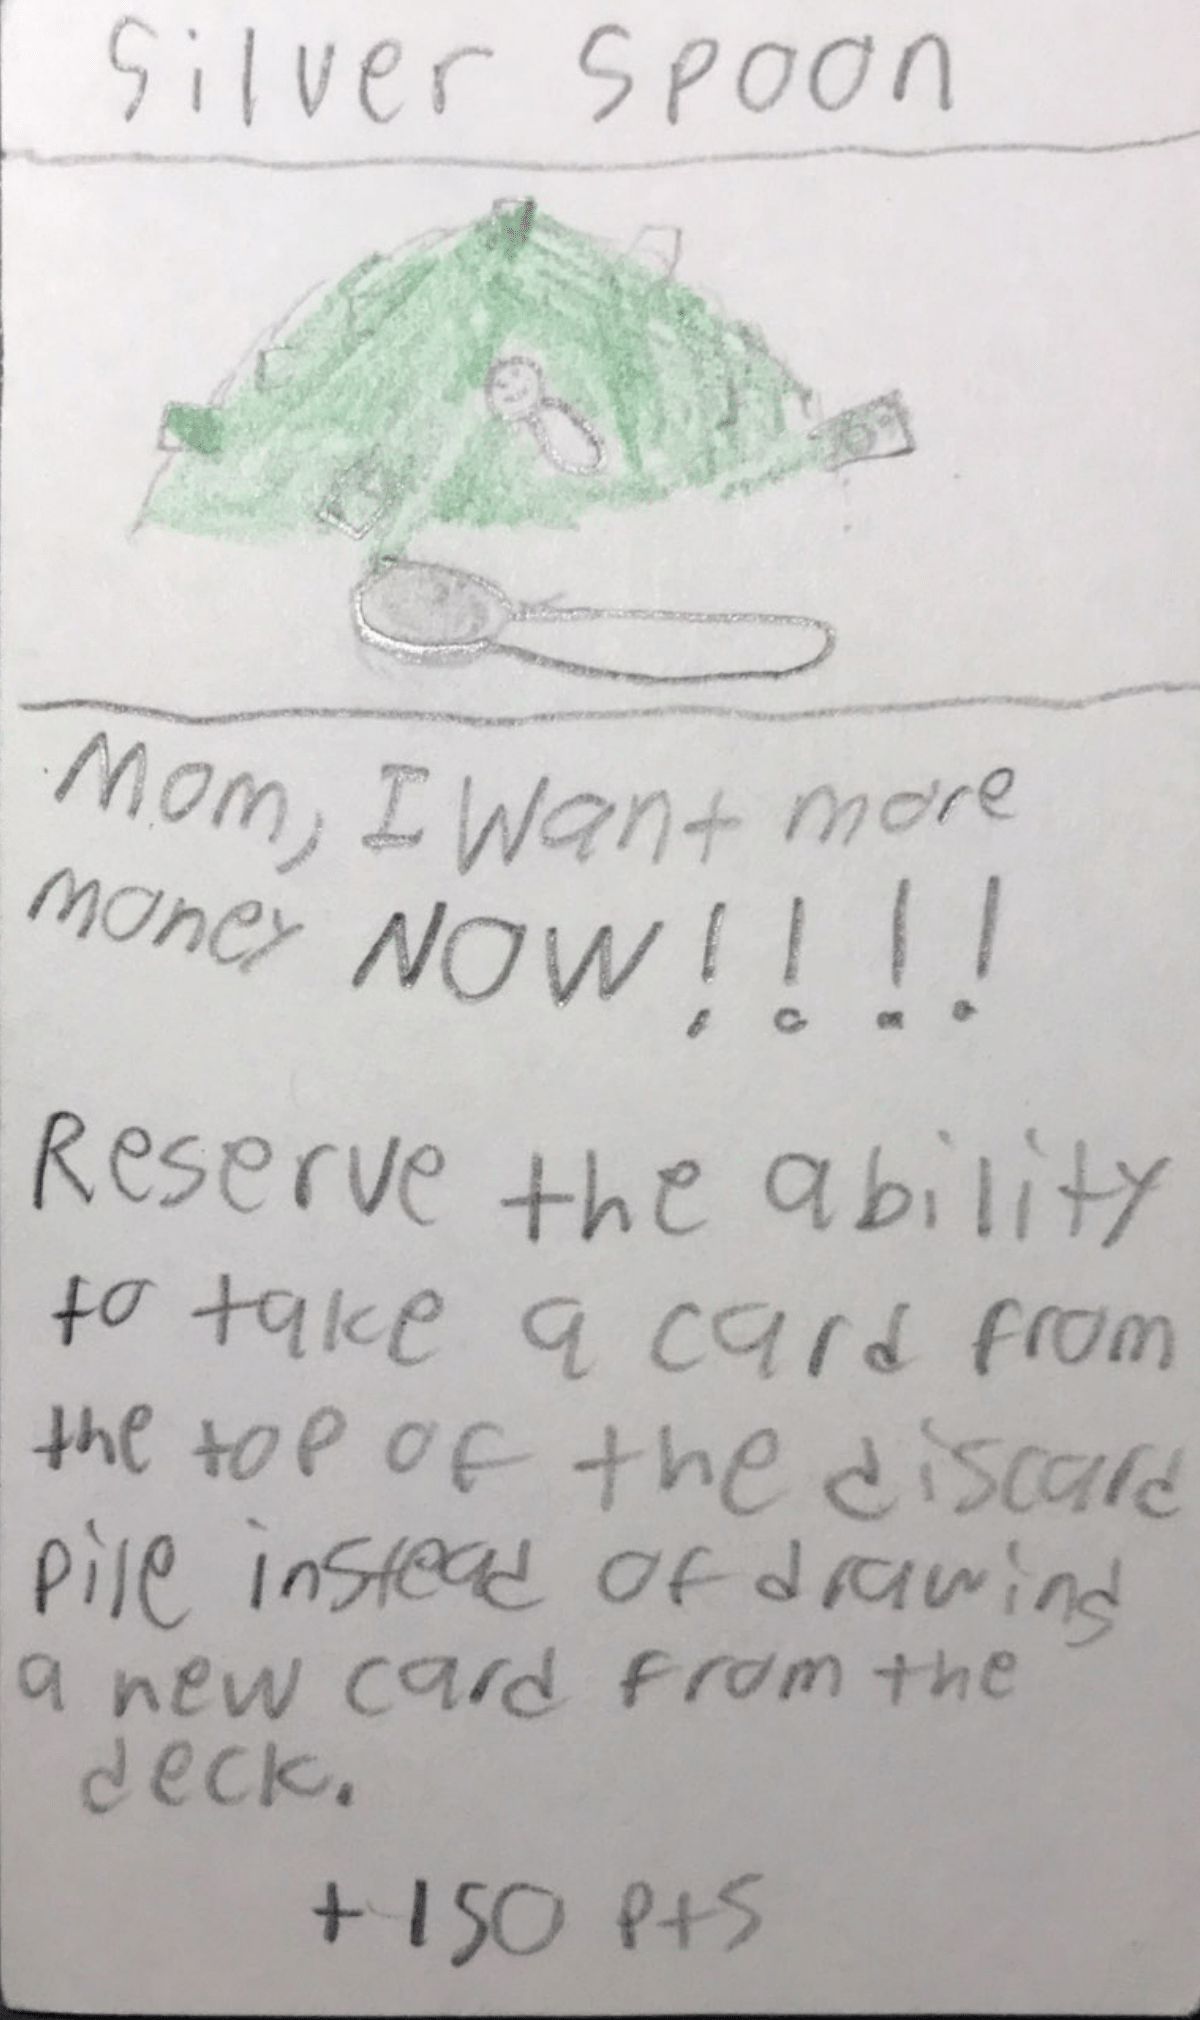 Silver Spoon
Mom, I Want more
money NOW!!!!
Reserve the ability
to take a card from
the top of the discard
pile instead of drawing
a new card from the
deck.
+150 pts